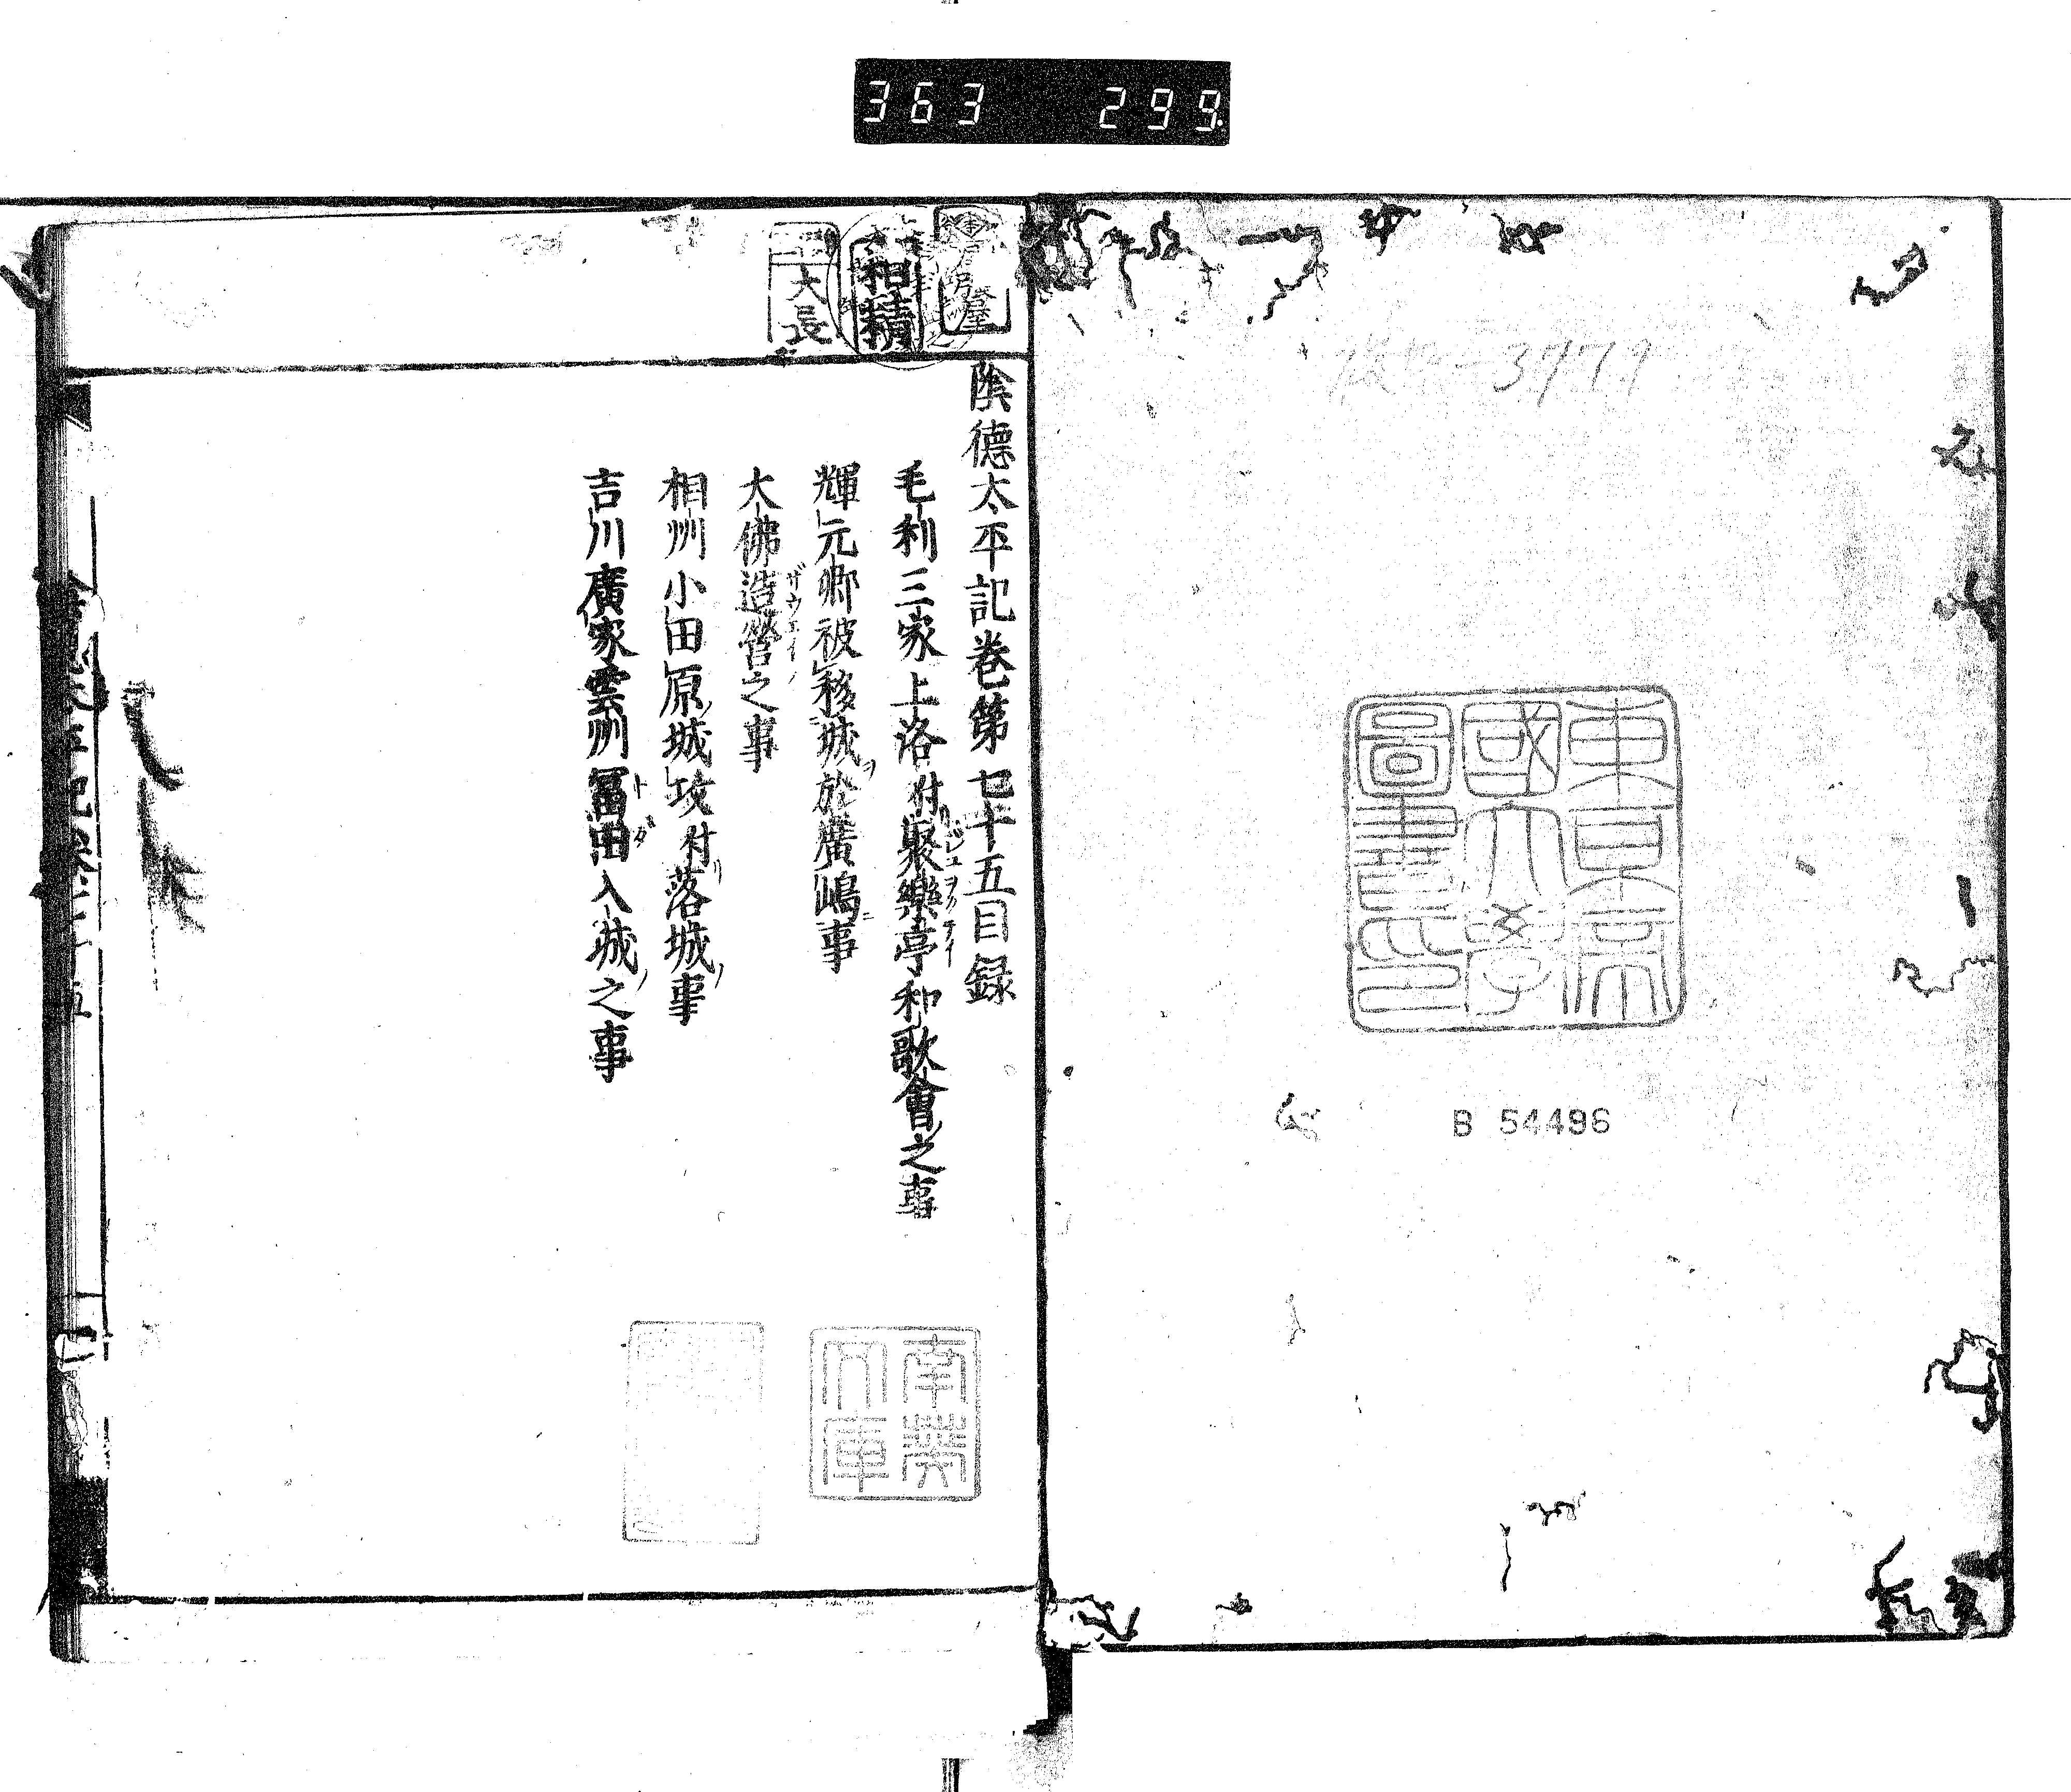 363 299
3779
東京帝
國大學
圖書印
B 54496
陰德太平記巻第七十五目録
毛利三家上洛附聚樂亭和歌會之事
輝元卿被移城於廣嶋事
大佛造營之事
相州小田原城攻附落城事
吉川廣家雲州冨田入城之事
南葵
文庫
大長